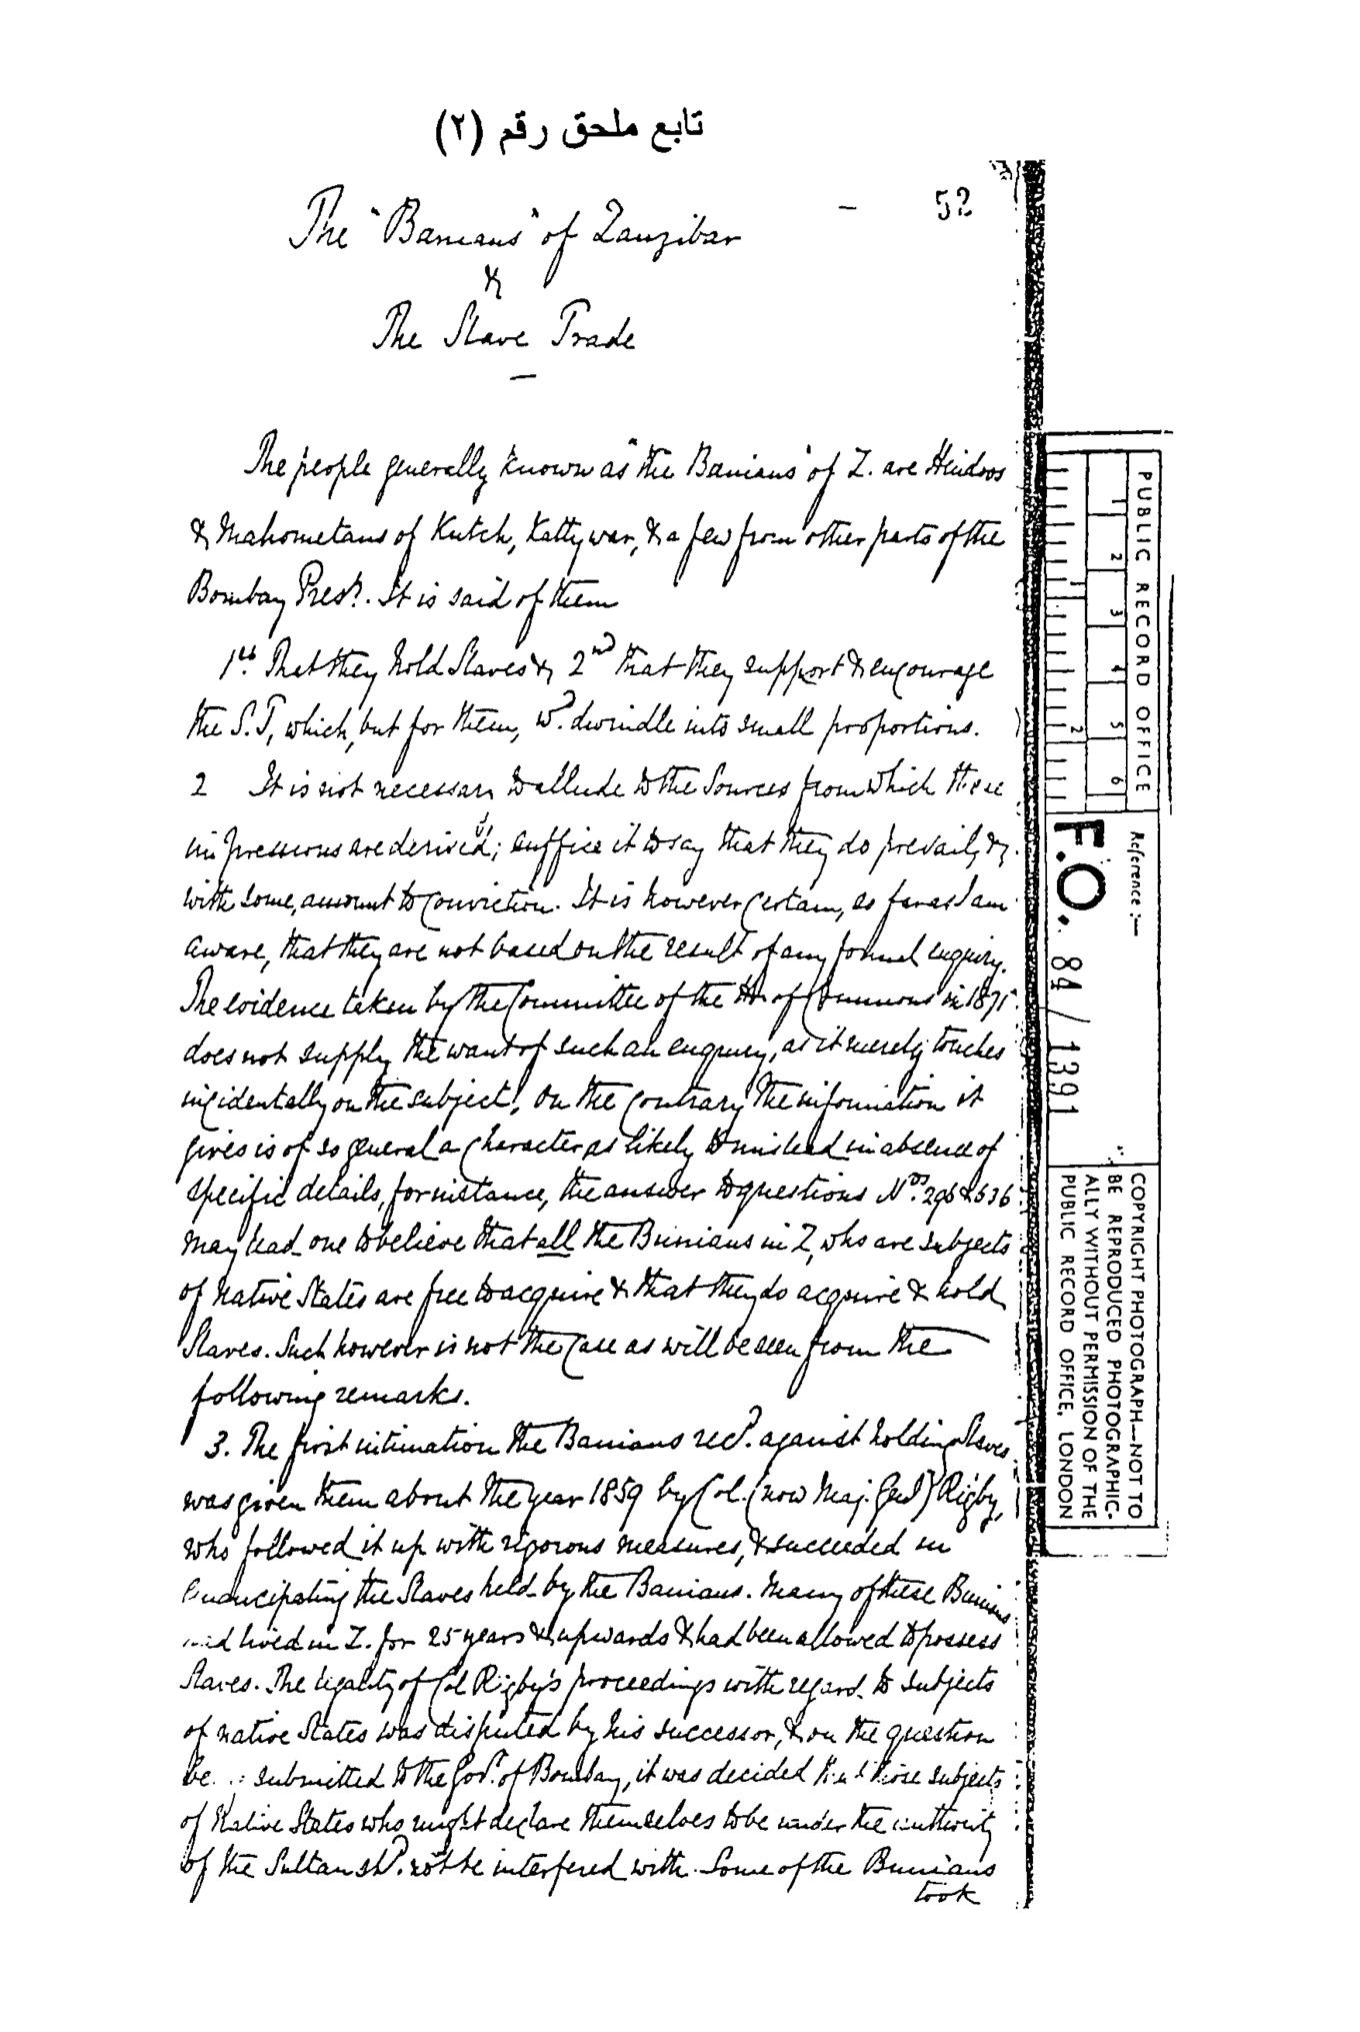 تابع ملحق رقم (٢)
52
The "Banians" of Zanzibar
&
The Slave Trade
The people generally known as "the Banians" of Z. are Hindoos
& Mahometans of Kutch, Kattywar, & a few from other parts of the
Bombay Presy. It is said of them
1st. That they hold Slaves &, 2nd that they support & encourage
the S.T, which, but for them, wd. dwindle into small proportions.
2 It is not necessary to allude to the Sources from which these
impressions are derived; suffice it to say that they do prevail, &,
with some, amount to conviction. It is however certain, as far as I am
aware, that they are not based on the result of any formal enquiry.
The evidence taken by the Committee of the Ho. of Commons in 1871
does not supply the want of such an enquiry, as it merely touches
incidentally on the subject, on the contrary the information it
gives is of so general a character as likely to mislead in absence of
specific details, for instance, the answer to questions Nos. 296 & 536
may lead one to believe that all the Banians in Z, who are subjects
of native States are free to acquire & that they do acquire & hold
Slaves. Such however is not the case as will be seen from the
following remarks.
3. The first intimation the Banians recd. against holding Slaves
was given them about the year 1859 by Col. (now Maj. Genl) Rigby,
who followed it up with rigorous measures, & succeeded in
emancipating the Slaves held by the Banians. Many of these Banians
had lived in Z. for 25 years & upwards & had been allowed to possess
Slaves. The legality of Col Rigby's proceedings with regard to subjects
of native States was disputed by his successor, & on the question
submitted to the Govt. of Bombay, it was decided that those subjects
of Native States who might declare themselves to be under the authority
of the Sultan shd. not be interfered with. Some of the Banians
took
PUBLIC RECORD OFFICE
1 2 3 4 5 6
2
Reference :-
F.O. 84 / 1391
COPYRIGHT PHOTOGRAPH—NOT TO
BE REPRODUCED PHOTOGRAPHIC-
ALLY WITHOUT PERMISSION OF THE
PUBLIC RECORD OFFICE, LONDON